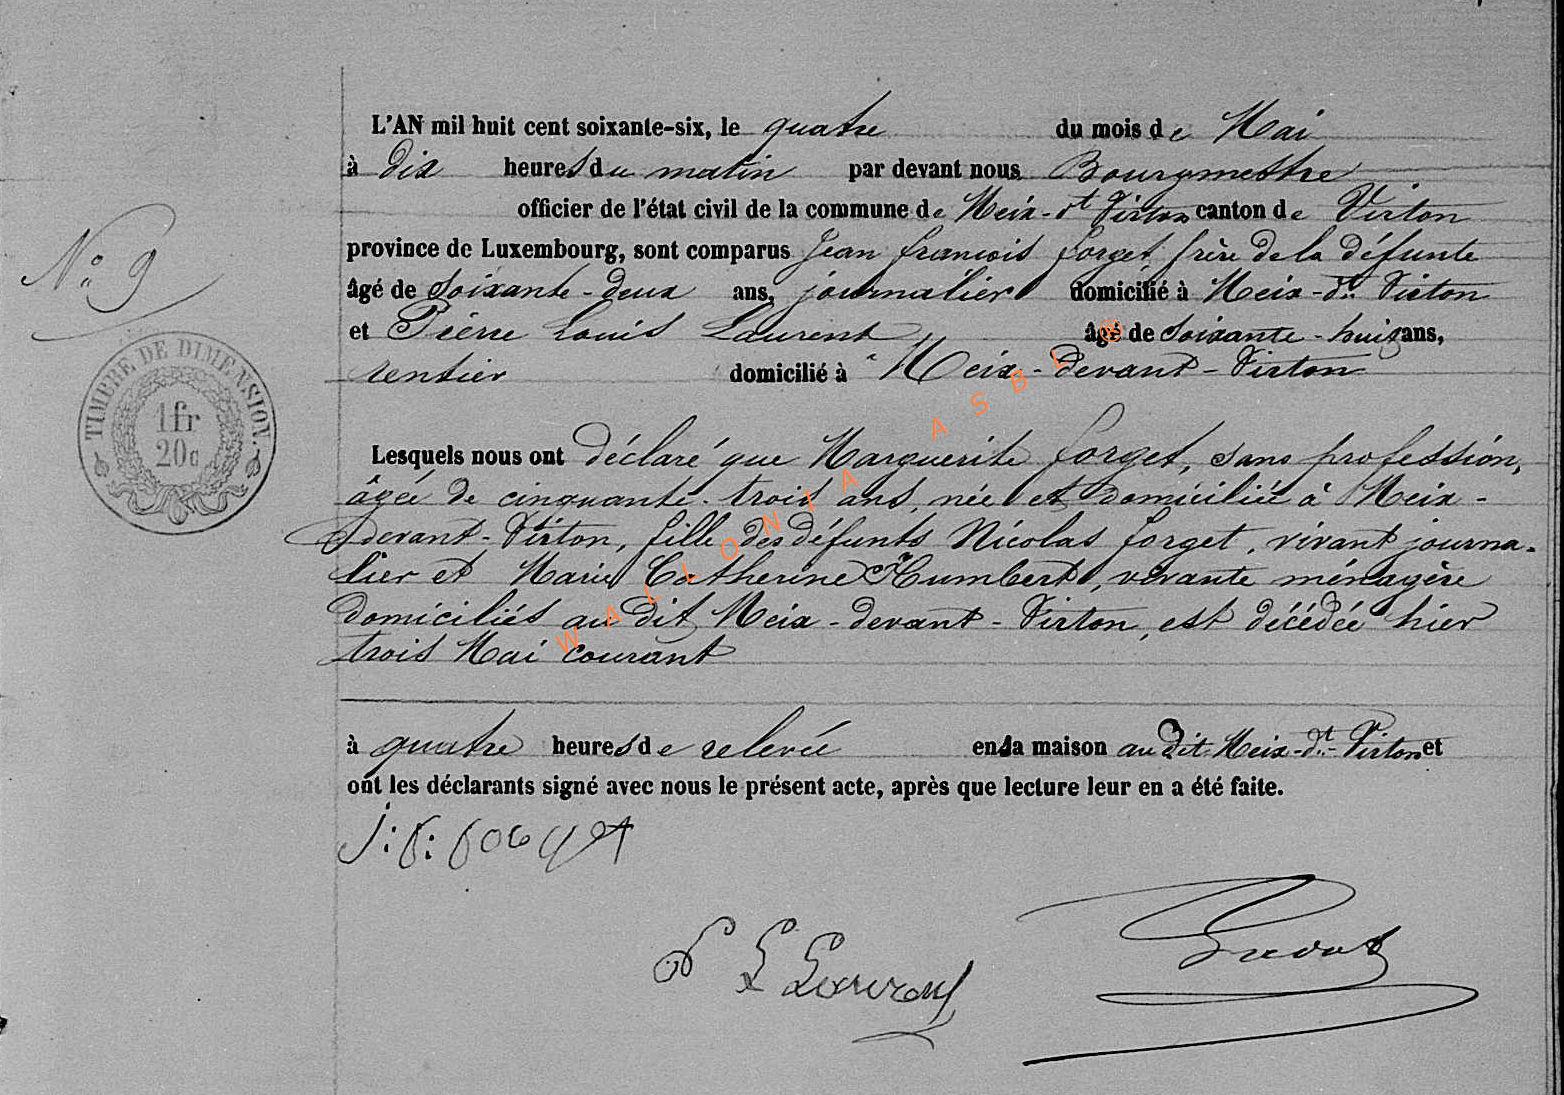 L'AN mil huit cent soixante-six, le quatre du mois de Mai
à dix heures du matin par devant nous Bourgmestre
officier de l'état civil de la commune de Meix-dt Virton canton de Virton
province de Luxembourg, sont comparus Jean François forget frère de la défunte
âgé de Soixante-deux ans, journalier domicilié à Meix-dt Virton
et Pierre Louis Laurent âgé de Soixante-huit ans,
rentier domicilié à Meix-devant-Virton
N° 9
TIMBRE DE DIMENSION.
1 fr
20 c
Lesquels nous ont déclaré que Marguerite forget, sans profession,
âgée de cinquante-trois ans, née et domiciliée à Meix-
devant-Virton, fille des défunts Nicolas forget, vivant journa-
lier et Marie Catherine Humbert, vivante ménagère
domiciliés au dit Meix-devant-Virton, est décédée hier
trois Mai courant
à quatre heures de relevée en la maison au dit Meix-dt-Virton et
ont les déclarants signé avec nous le présent acte, après que lecture leur en a été faite.
j: f: forget
P L Laurent
WALLONIA ASBL ©